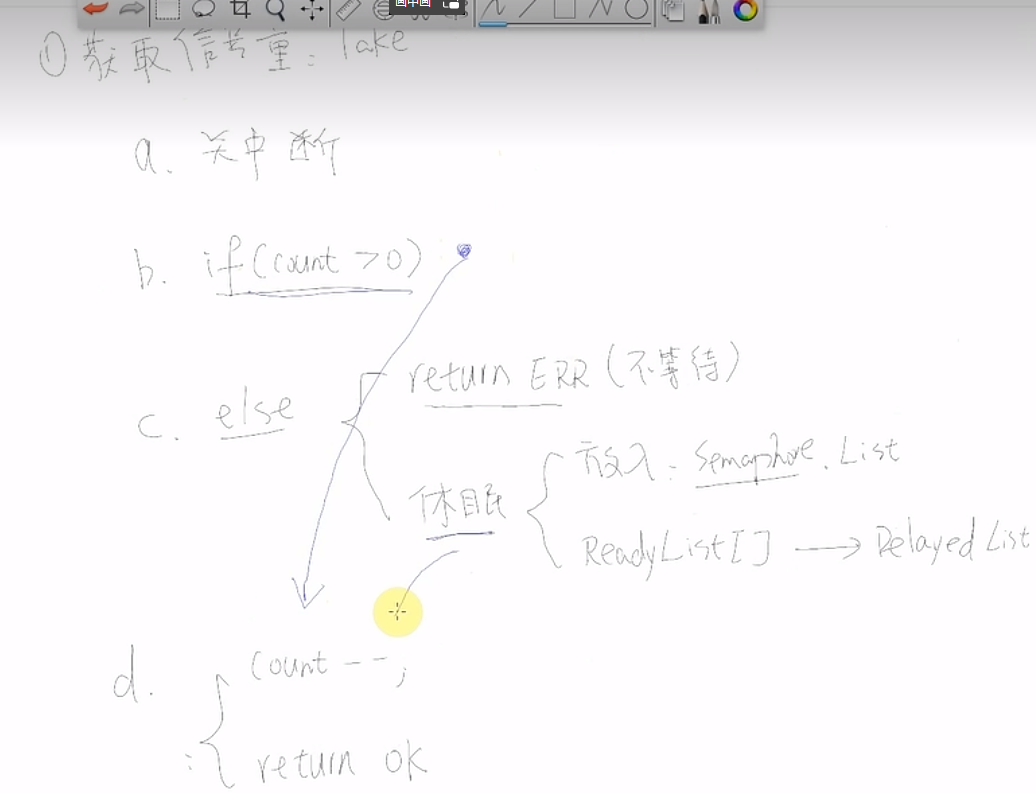 画中画
① 获取信号量: take
a. 关中断
b. if(count >0)
c. else
return ERR (不等待)
休眠
放入: Semaphore.List
ReadyList[] → Delayed List
d.
Count --;
return ok